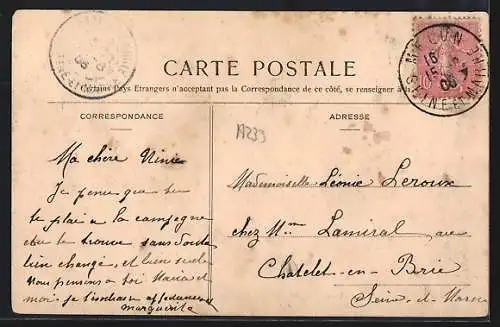 CARTE POSTALE
Certains Pays Etrangers n'acceptant pas la Correspondance de ce côté, se renseigner à la
CORRESPONDANCE
ADRESSE
MELUN
SEINE-ET-MARNE
A233
Ma chère Ninie
Je pense que tu
te plai a la campagne
et tu te trouve sans doute
bien changé, et bien seule
Nous pensons a toi Maria et
moi. je t'embrasse affectueusement
Marguerite
Mademoiselle Léonie Leroux
chez Mme Lamiral
Chatelet-en-Brie
Seine-et-Marne